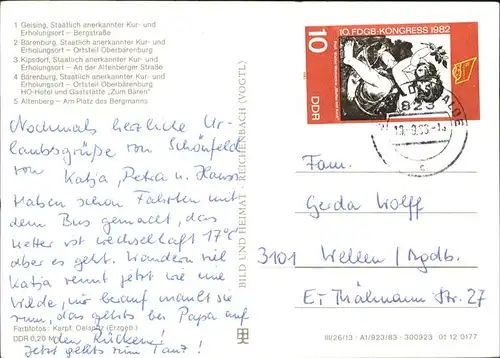 1 Geising, Staatlich anerkannter Kur- und
Erholungsort – Bergstraße
2 Bärenburg, Staatlich anerkannter Kur- und
Erholungsort – Ortsteil Oberbärenburg
3 Kipsdorf, Staatlich anerkannter Kur- und
Erholungsort – An der Altenberger Straße
4 Bärenburg, Staatlich anerkannter Kur- und
Erholungsort – Ortsteil Oberbärenburg
HO-Hotel und Gaststätte „Zum Bären"
5 Altenberg – Am Platz des Bergmanns
Nochmals herzliche Ur-
laubsgrüße von Schönfeld
von Katja, Petra u. Hans.
Haben schon Fahrten mit
dem Bus gemacht, das
Wetter ist wechselhaft 17°C
aber es geht. Wandern viel
Katja rennt jetzt wie eine
Wilde, nur berauf mault sie
rum, das gehts bei Papa auf
den Rücken!
Jetzt gehts zum Tanz!
Farbfotos: Karpf, Oelsnitz (Erzgeb.)
DDR 0,20 M
BILD UND HEIMAT · REICHENBACH (VOGTL)
10. FDGB-KONGRESS 1982
10
DDR
823
c
Fam.
Gerda Wolff
3101 Wellen / Mgdb.
E.-Thälmann Str. 27
III/26/13 · A1/923/83 · 300923 01 12 0177